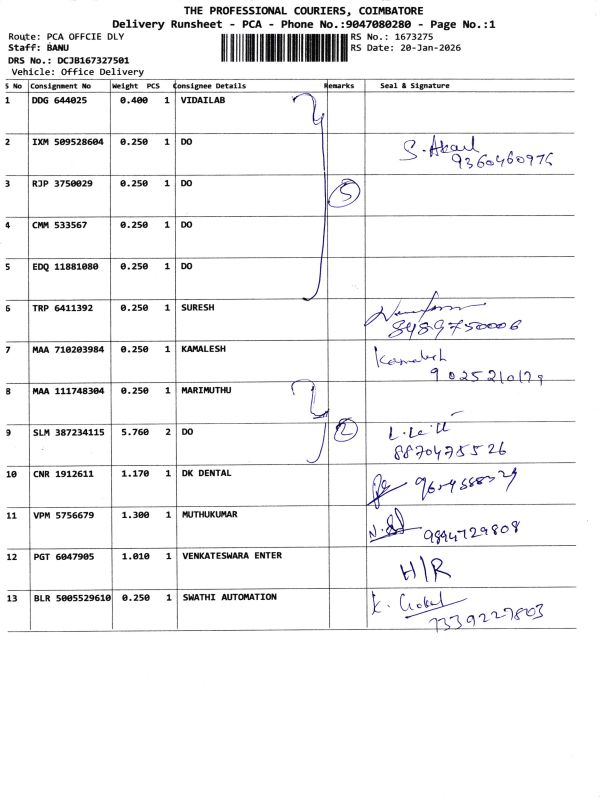 THE PROFESSIONAL COURIERS, COIMBATORE
Delivery Runsheet - PCA - Phone No.:9047080280 - Page No.:1
Route: PCA OFFCIE DLY RS No.: 1673275
Staff: BANU RS Date: 20-Jan-2026
DRS No.: DCJB167327501
Vehicle: Office Delivery
S No Consignment No Weight PCS Consignee Details Remarks Seal & Signature
1 DDG 644025 0.400 1 VIDAILAB
2 IXM 509528604 0.250 1 DO
9360460976
3 RJP 3750029 0.250 1 DO 5
4 CMM 533567 0.250 1 DO
5 EDQ 11881080 0.250 1 DO
6 TRP 6411392 0.250 1 SURESH
8489750006
7 MAA 710203984 0.250 1 KAMALESH Kamalesh
8 MAA 111748304 0.250 1 MARIMUTHU
9 SLM 387234115 5.760 2 DO 2
8870475526
10 CNR 1912611 1.170 1 DK DENTAL
11 VPM 5756679 1.300 1 MUTHUKUMAR
9894729808
12 PGT 6047905 1.010 1 VENKATESWARA ENTER H/R
13 BLR 5005529610 0.250 1 SWATHI AUTOMATION K. Gokul
7339227803